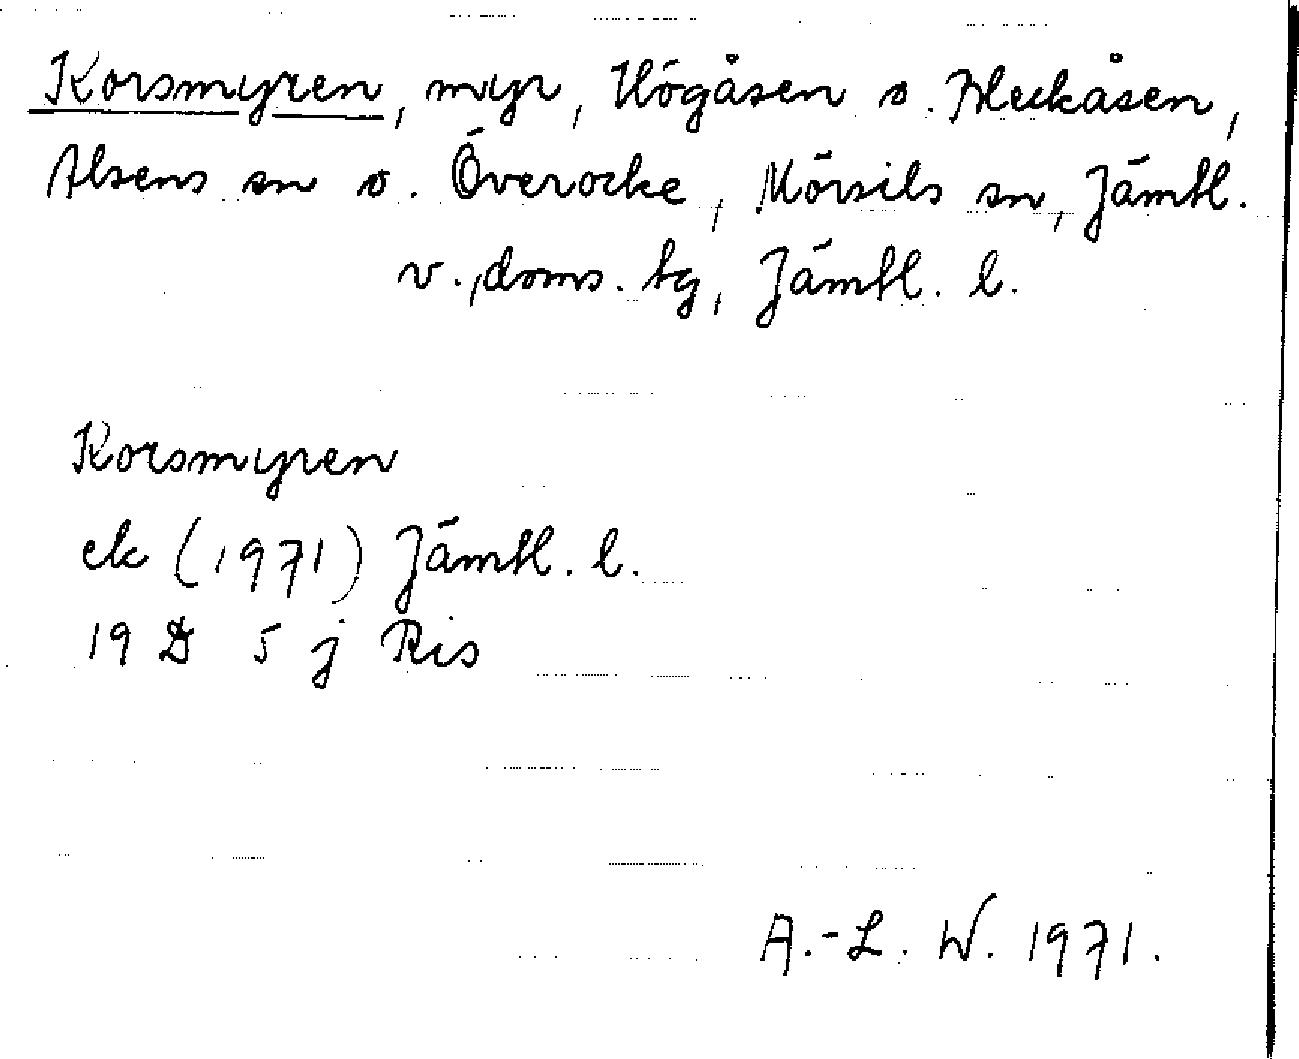 Korsmyren, myr, Högåsen o. Bleckåsen,
Alsens sn o. Överocke, Mörsils sn, Jämtl.
v., doms. tg, Jämtl. l.
Korsmyren
ek (1971) Jämtl. l.
19 D 5 j Ris
A.-L. W. 1971.